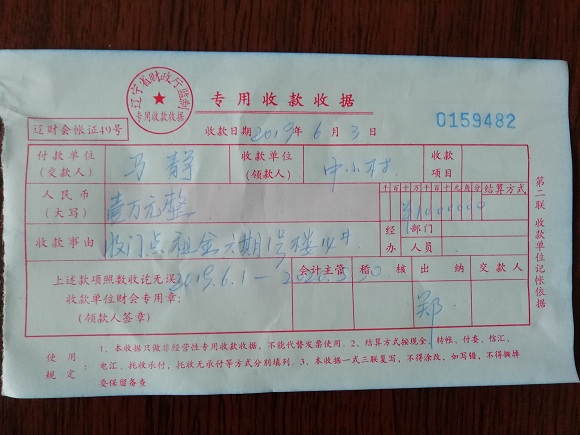 辽宁省财政厅监制
专用收款收据
专用收款收据
辽财会帐证49号
收款日期2019年6月3日
0159482
付款单位
(交款人)
马静
收款单位
(领款人)
中小村
收款
项目
人民币
(大写)
壹万元整
千百十万千百十元角分
¥1000000
结算方式
收款事由
收门点租金六期1号楼14#
经办
部门
人员
上述款项照数收讫无误。
2019.6.1—
收款单位财会专用章:
(领款人签章)
会计主管
稽核
出纳
郑
交款人
第二联 收款单位记帐依据
使用规定:
1、本收据只做非经营性专用收款收据,不能代替发票使用。2、结算方式按现金,转帐、付委、信汇、
电汇、托收承付,托收无承付等方式分别填列。3、本收据一式三联复写,不得涂改,如写错,不得撕掉
要保留备查